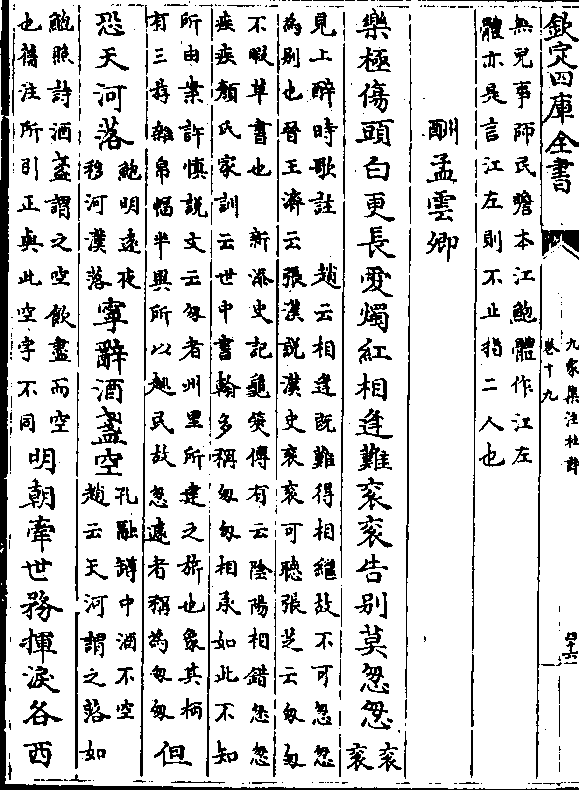 欽定四庫全書
九家集注杜詩
卷十九
無兒事師民瞻本江鮑體作江左
體亦是言江左則不止指二人也
酬孟雲卿
樂極傷頭白更長愛燭紅相逢難衮衮告別莫怱怱衮衮
見上醉時歌註 趙云相逢既難得相繼故不可怱怱
為別也晉王濟云張漢説漢史衮衮可聽張芝云匆匆
不暇草書也 新添史記龜筴傳有云陰陽相錯怱怱
疾疾顔氏家訓云世中書翰多稱匆匆相承如此不知
所由業許慎説文云匆者州里所建之旂也象其柄
有三斿雜帛幅半異所以趨民故怱遽者稱為匆匆但
恐天河落鮑明遠夜
移河漢落寧辭酒盞空孔融罇中酒不空
趙云天河謂之落如
鮑照詩酒盞謂之空飲盡而空
也舊注所引正與此空字不同明朝牽世務揮淚各西